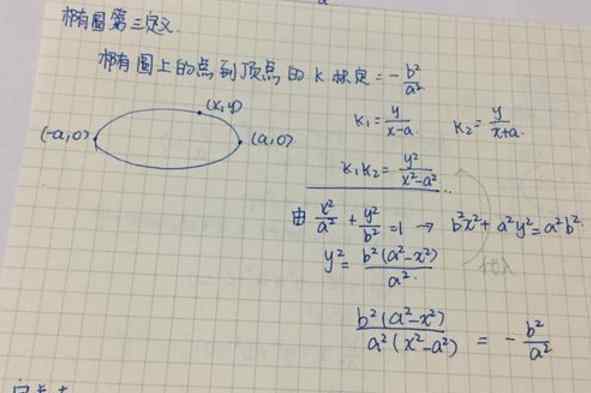 椭圆第三定义
椭圆上的点到顶点的K积定=-b²/a²
(x,y)
(-a,0)
(a,0)
K₁=y/(x-a) K₂=y/(x+a)
K₁K₂=y²/(x²-a²)
由 x²/a²+y²/b²=1 → b²x²+a²y²=a²b²
y²=b²(a²-x²)/a²
代入
b²(a²-x²)/a²(x²-a²) = -b²/a²